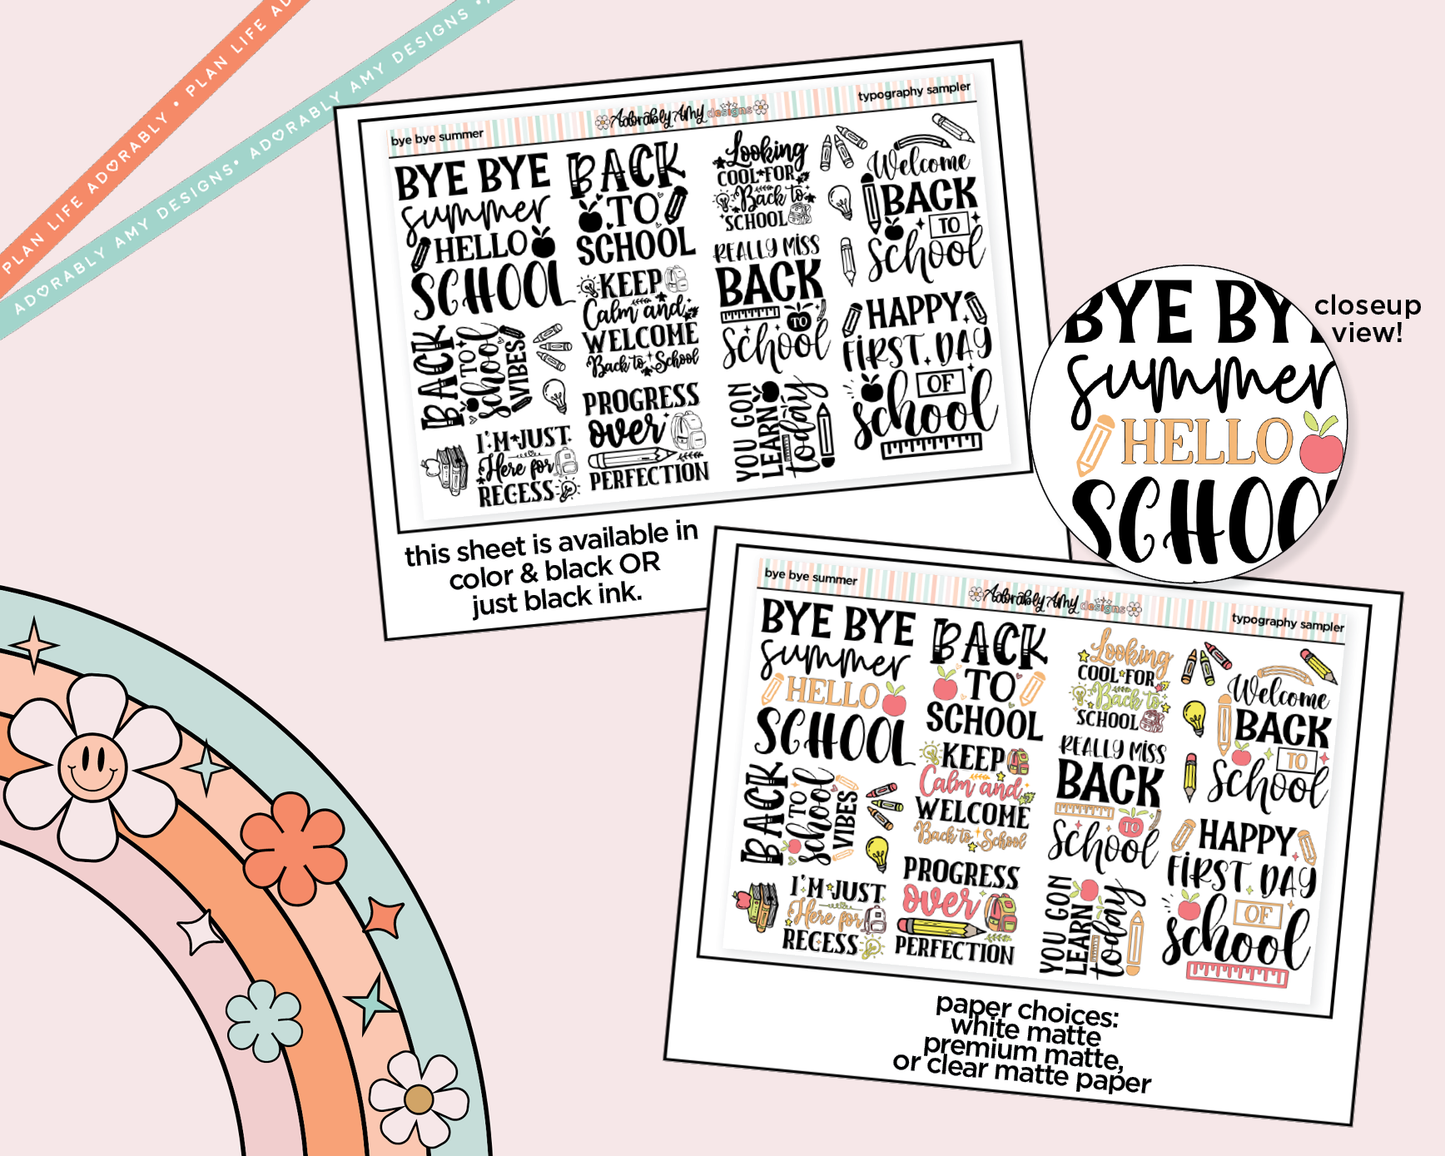 PLAN LIFE ADORABLY • PLAN LIFE AD
ADORABLY AMY DESIGNS • ADORABLY AMY DESIGNS •
bye bye summer
Adorably Amy designs
typography sampler
BYE BYE
summer
HELLO
SCHOOL
BACK
TO
SCHOOL
Looking
COOL FOR
Back to
SCHOOL
Welcome
BACK
TO
school
KEEP
Calm and
WELCOME
Back to School
REALLY MISS
BACK
TO
school
HAPPY
FIRST DAY
OF
school
BACK
TO
school
VIBES
I'M JUST
Here for
RECESS
PROGRESS
over
PERFECTION
YOU GON
LEARN
today
this sheet is available in
color & black OR
just black ink.
BYE BY
summer
HELLO
SCHOO
closeup
view!
bye bye summer
Adorably Amy designs
typography sampler
BYE BYE
summer
HELLO
SCHOOL
BACK
TO
SCHOOL
Looking
COOL FOR
Back to
SCHOOL
Welcome
BACK
TO
school
KEEP
Calm and
WELCOME
Back to School
REALLY MISS
BACK
TO
school
HAPPY
FIRST DAY
OF
school
BACK
TO
school
VIBES
I'M JUST
Here for
RECESS
PROGRESS
over
PERFECTION
YOU GON
LEARN
today
paper choices:
white matte
premium matte,
or clear matte paper